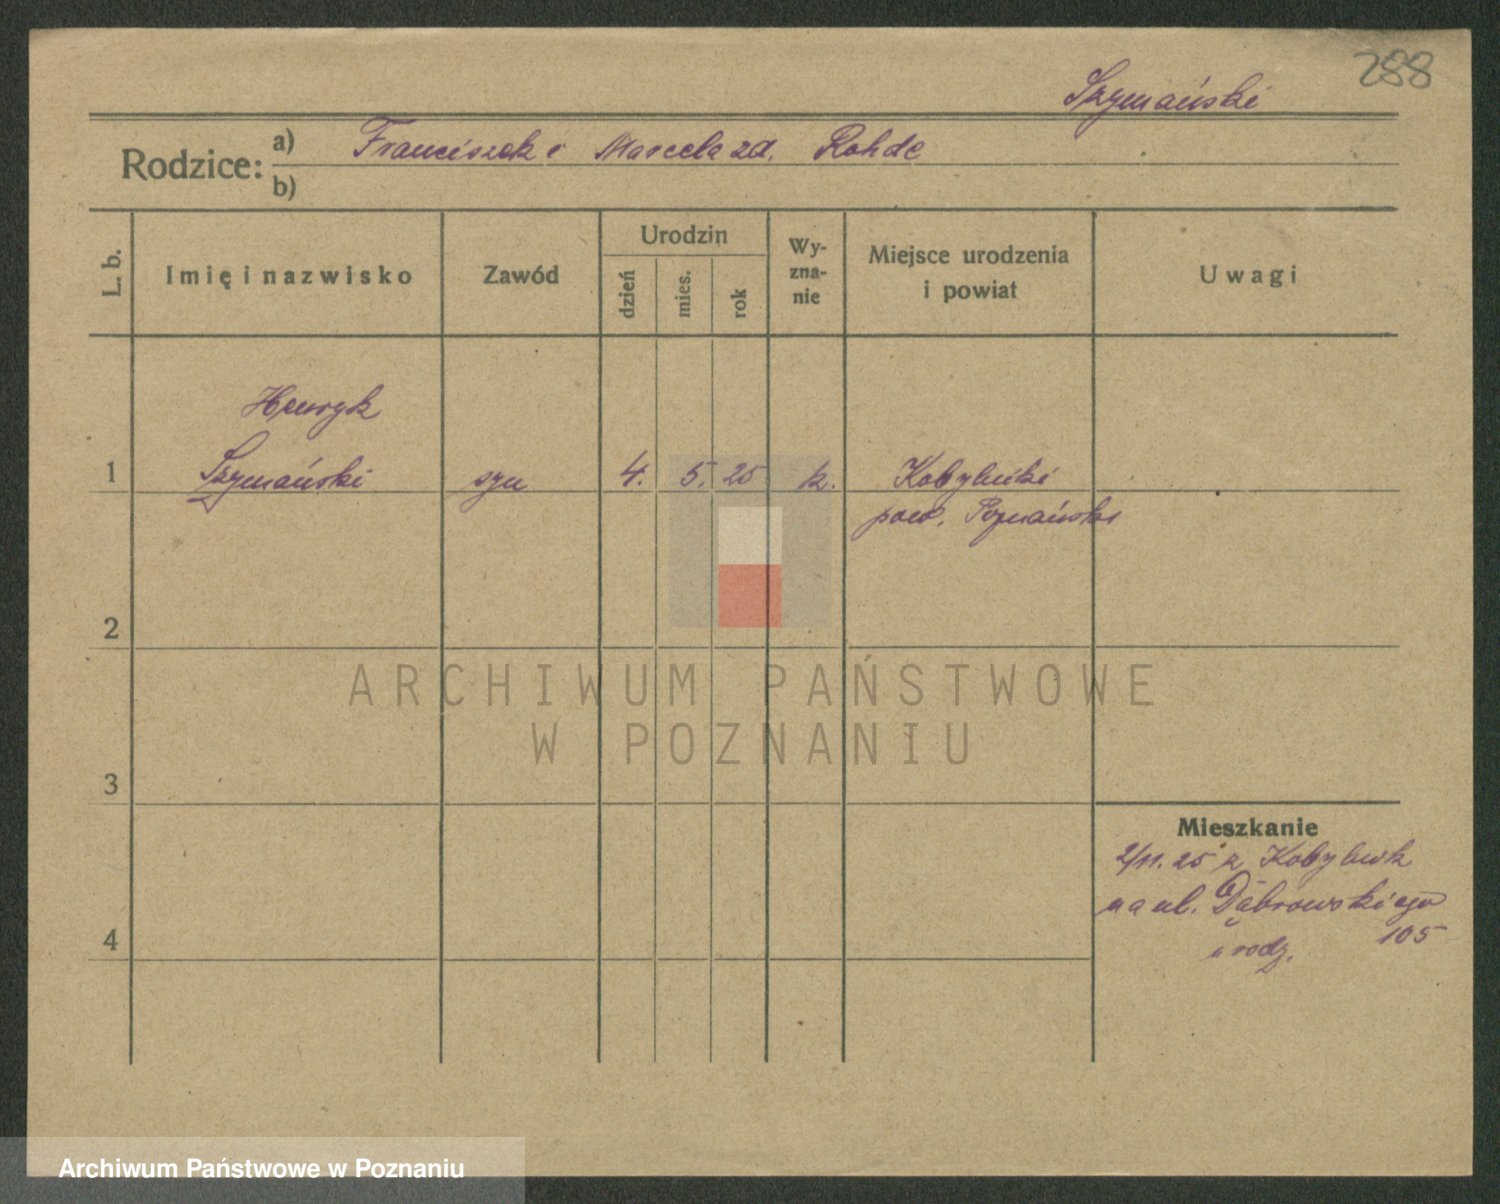 288
Szymański
Rodzice:
a) Franciszek i Marcela zd. Rohde
b)
L. b.
Imię i nazwisko
Zawód
Urodzin
dzień
mies.
rok
Wy-
zna-
nie
Miejsce urodzenia
i powiat
Uwagi
Henryk
1 Szymański syn 4. 5. 25 k. Kobylniki
pow. Poznański
2
3
4
Mieszkanie
2/11. 25 z Kobylnik
na ul. Dąbrowskiego
105
u rodz.
ARCHIWUM PAŃSTWOWE
W POZNANIU
Archiwum Państwowe w Poznaniu